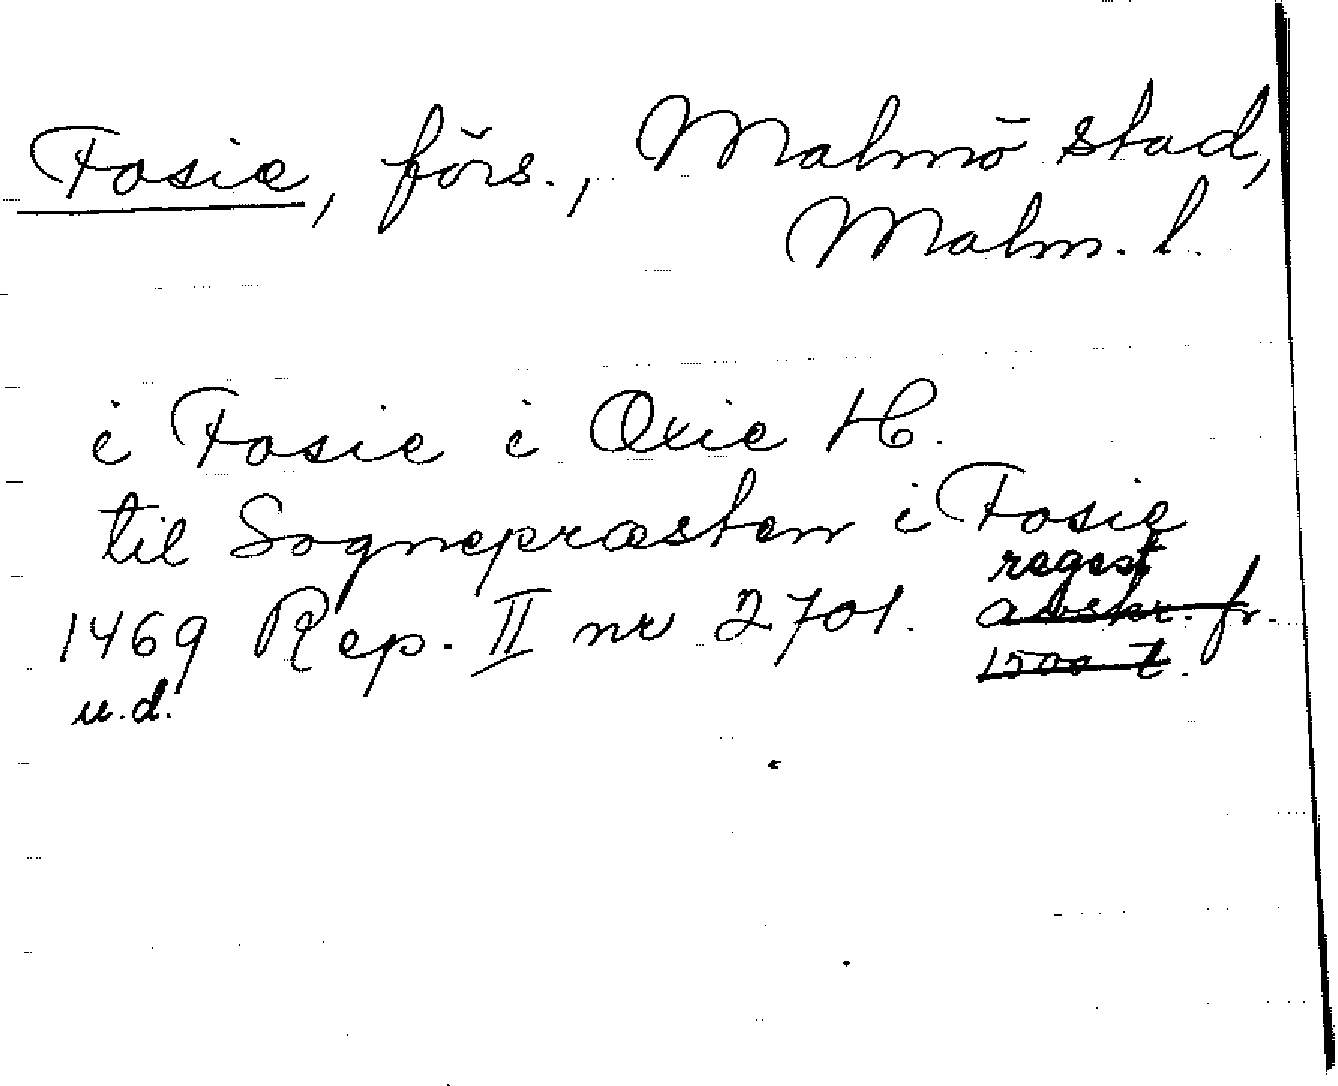 Fosie, förs., Malmö stad,
Malm. l.
i Fosie i Oxie H.
til Sognepræsten i Fosie
regest
1469 Rep. II nr 2701. avskr. fr.
u.d. 1500 t.